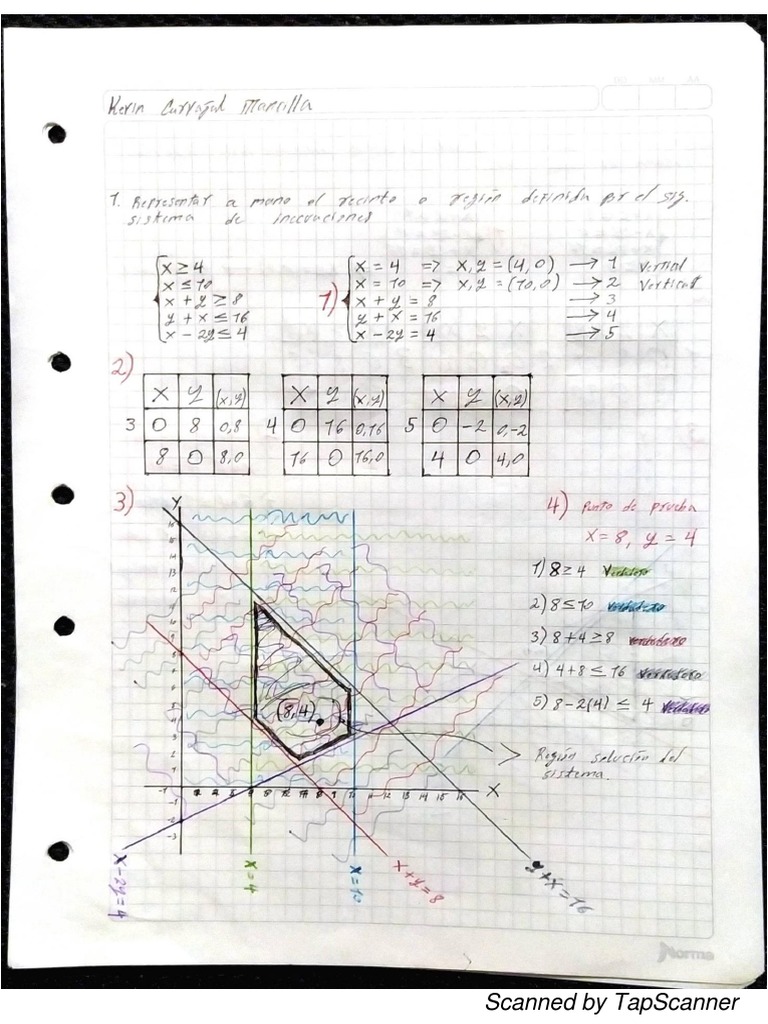 Kevin Carvajal Mancilla
1. Representar a mano el recinto o región definida por el sig.
sistema de inecuaciones
x ≥ 4
x ≤ 10
x + y ≥ 8
y + x ≤ 16
x - 2y ≤ 4
1)
x = 4 => x,y = (4,0) → 1 Vertical
x = 10 => x,y = (10,0) → 2 Vertical
x + y = 8 → 3
y + x = 16 → 4
x - 2y = 4 → 5
2)
x y (x,y)
3 0 8 0,8
8 0 8,0
x y (x,y)
4 0 16 0,16
16 0 16,0
x y (x,y)
5 0 -2 0,-2
4 0 4,0
3)
Y
(8,4)
X
x-2y=4
x=4
x=10
x+y=8
y+x=16
4) punto de prueba
x=8, y=4
1) 8≥4 Verdadero
2) 8≤10 verdadero
3) 8+4≥8 verdadero
4) 4+8≤16 verdadero
5) 8-2(4) ≤ 4 Verdadero
Región solución del
sistema.
Norma
Scanned by TapScanner